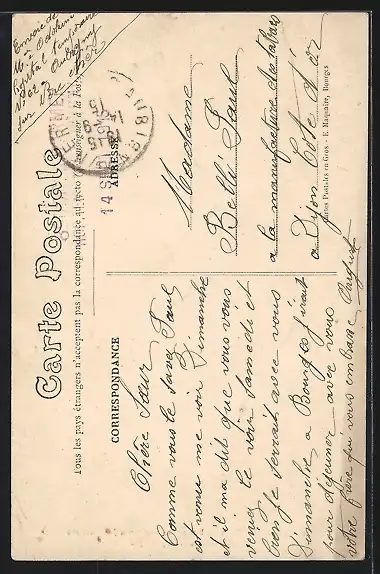 Carte Postale
Tous les pays étrangers n'acceptent pas la correspondance au recto (se renseigner à la Poste)
CORRESPONDANCE
ADRESSE
Envoie de
Hôpital temporaire
No 62
sur
cher
14
AUBIGNY
Madame
Belli Paul
a la manufacture des tabacs
a Dijon Cote d'or
Chère Sœur
Comme vous le savez Paul
est venu me voir Dimanche
et il ma dit que vous vous
veniez le voir Samedi et
bien je serrait avec vous
Dimanche a Bourges j'irait
pour déjeuner avec vous
votre frère qui vous embrasse
Cartes Postales en Gros - E. Maquaire, Bourges